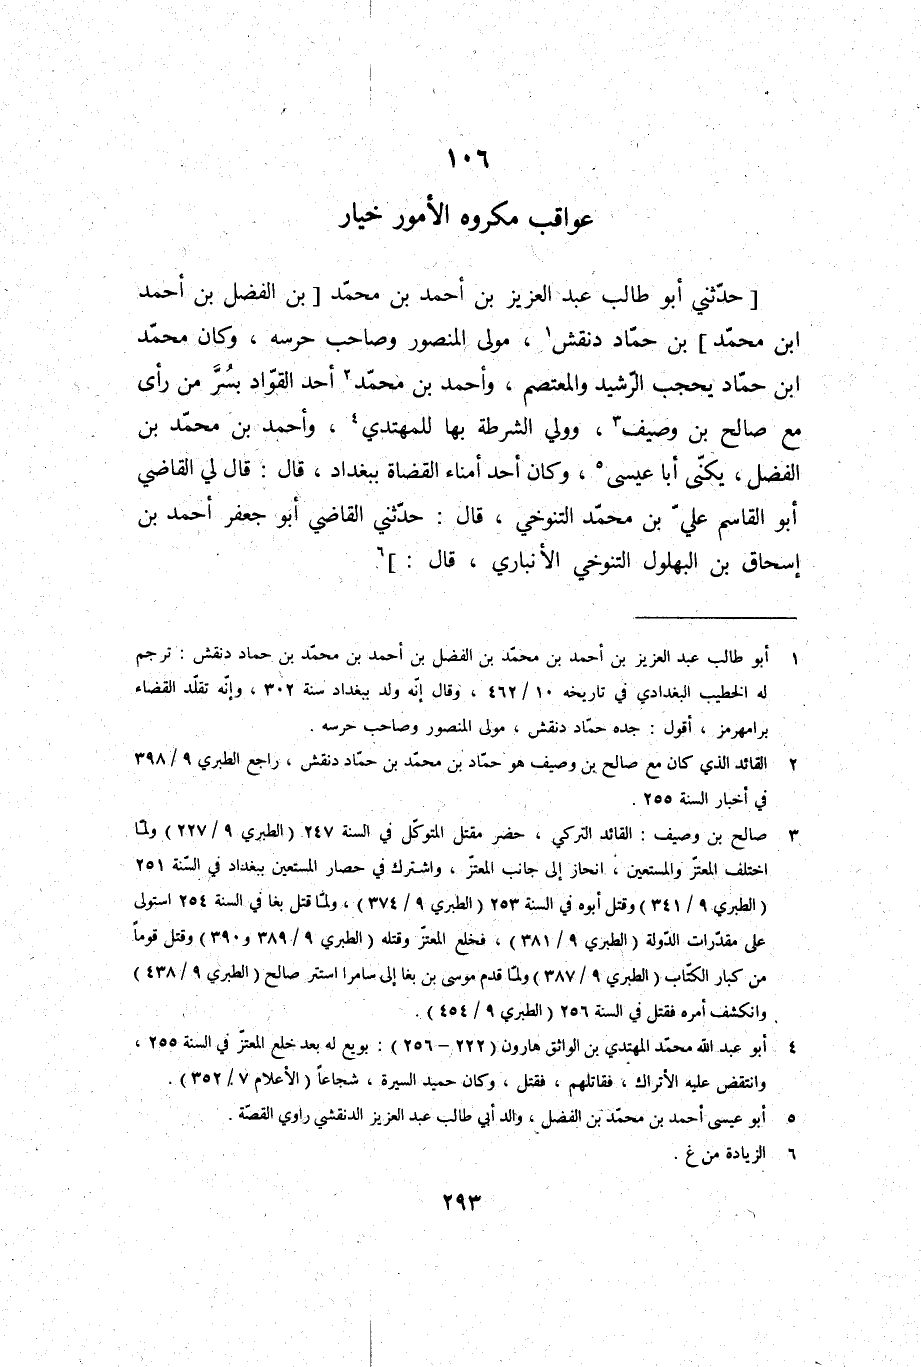 ١٠٦
عواقب مكروه الأمور خيار
[ حدّثني أبو طالب عبد العزيز بن أحمد بن محمّد [ بن الفضل بن أحمد
ابن محمّد ] بن حمّاد دنقش١ ، مولى المنصور وصاحب حرسه ، وكان محمّد
ابن حمّاد يحجب الرّشيد والمعتصم ، وأحمد بن محمّد٢ أحد القوّاد بسُرَّ من رأى
مع صالح بن وصيف٣ ، وولي الشرطة بها للمهتدي٤ ، وأحمد بن محمّد بن
الفضل ، يكنّى أبا عيسى٥ ، وكان أحد أمناء القضاة ببغداد ، قال : قال لي القاضي
أبو القاسم عليّ بن محمّد التنوخي ، قال : حدّثني القاضي أبو جعفر أحمد بن
إسحاق بن البهلول التنوخي الأنباري ، قال : ]٦
١ أبو طالب عبد العزيز بن أحمد بن محمّد بن الفضل بن أحمد بن محمّد بن حماد دنقش : ترجم
له الخطيب البغدادي في تاريخه ١٠ / ٤٦٢ ، وقال إنّه ولد ببغداد سنة ٣٠٢ ، وإنّه تقلّد القضاء
برامهرمز ، أقول : جده حمّاد دنقش ، مولى المنصور وصاحب حرسه .
٢ القائد الذي كان مع صالح بن وصيف هو حمّاد بن محمّد بن حمّاد دنقش ، راجع الطبري ٩ / ٣٩٨
في أخبار السنة ٢٥٥ .
٣ صالح بن وصيف : القائد التركي ، حضر مقتل المتوكّل في السنة ٢٤٧ ( الطبري ٩ / ٢٢٧ ) ولمّا
اختلف المعتزّ والمستعين ، انحاز إلى جانب المعتزّ ، واشترك في حصار المستعين ببغداد في السّنة ٢٥١
( الطبري ٩ / ٣٤١ ) وقتل أبوه في السنة ٢٥٣ ( الطبري ٩ / ٣٧٤ ) ، ولمّا قتل بغا في السنة ٢٥٤ استولى
على مقدّرات الدّولة ( الطبري ٩ / ٣٨١ ) ، فخلع المعتزّ وقتله ( الطبري ٩ / ٣٨٩ و ٣٩٠ ) وقتل قوماً
من كبار الكتّاب ( الطبري ٩ / ٣٨٧ ) ولمّا قدم موسى بن بغا إلى سامرا استتر صالح ( الطبري ٩ / ٤٣٨ )
وانكشف أمره فقتل في السنة ٢٥٦ ( الطبري ٩ / ٤٥٤ ) .
٤ أبو عبد الله محمّد المهتدي بن الواثق هارون ( ٢٢٢ – ٢٥٦ ) : بويع له بعد خلع المعتزّ في السنة ٢٥٥ ،
وانتقض عليه الأتراك ، فقاتلهم ، فقتل ، وكان حميد السيرة ، شجاعاً ( الأعلام ٧ / ٣٥٢ ) .
٥ أبو عيسى أحمد بن محمّد بن الفضل ، والد أبي طالب عبد العزيز الدنقشي راوي القصّة .
٦ الزيادة من غ .
٢٩٣